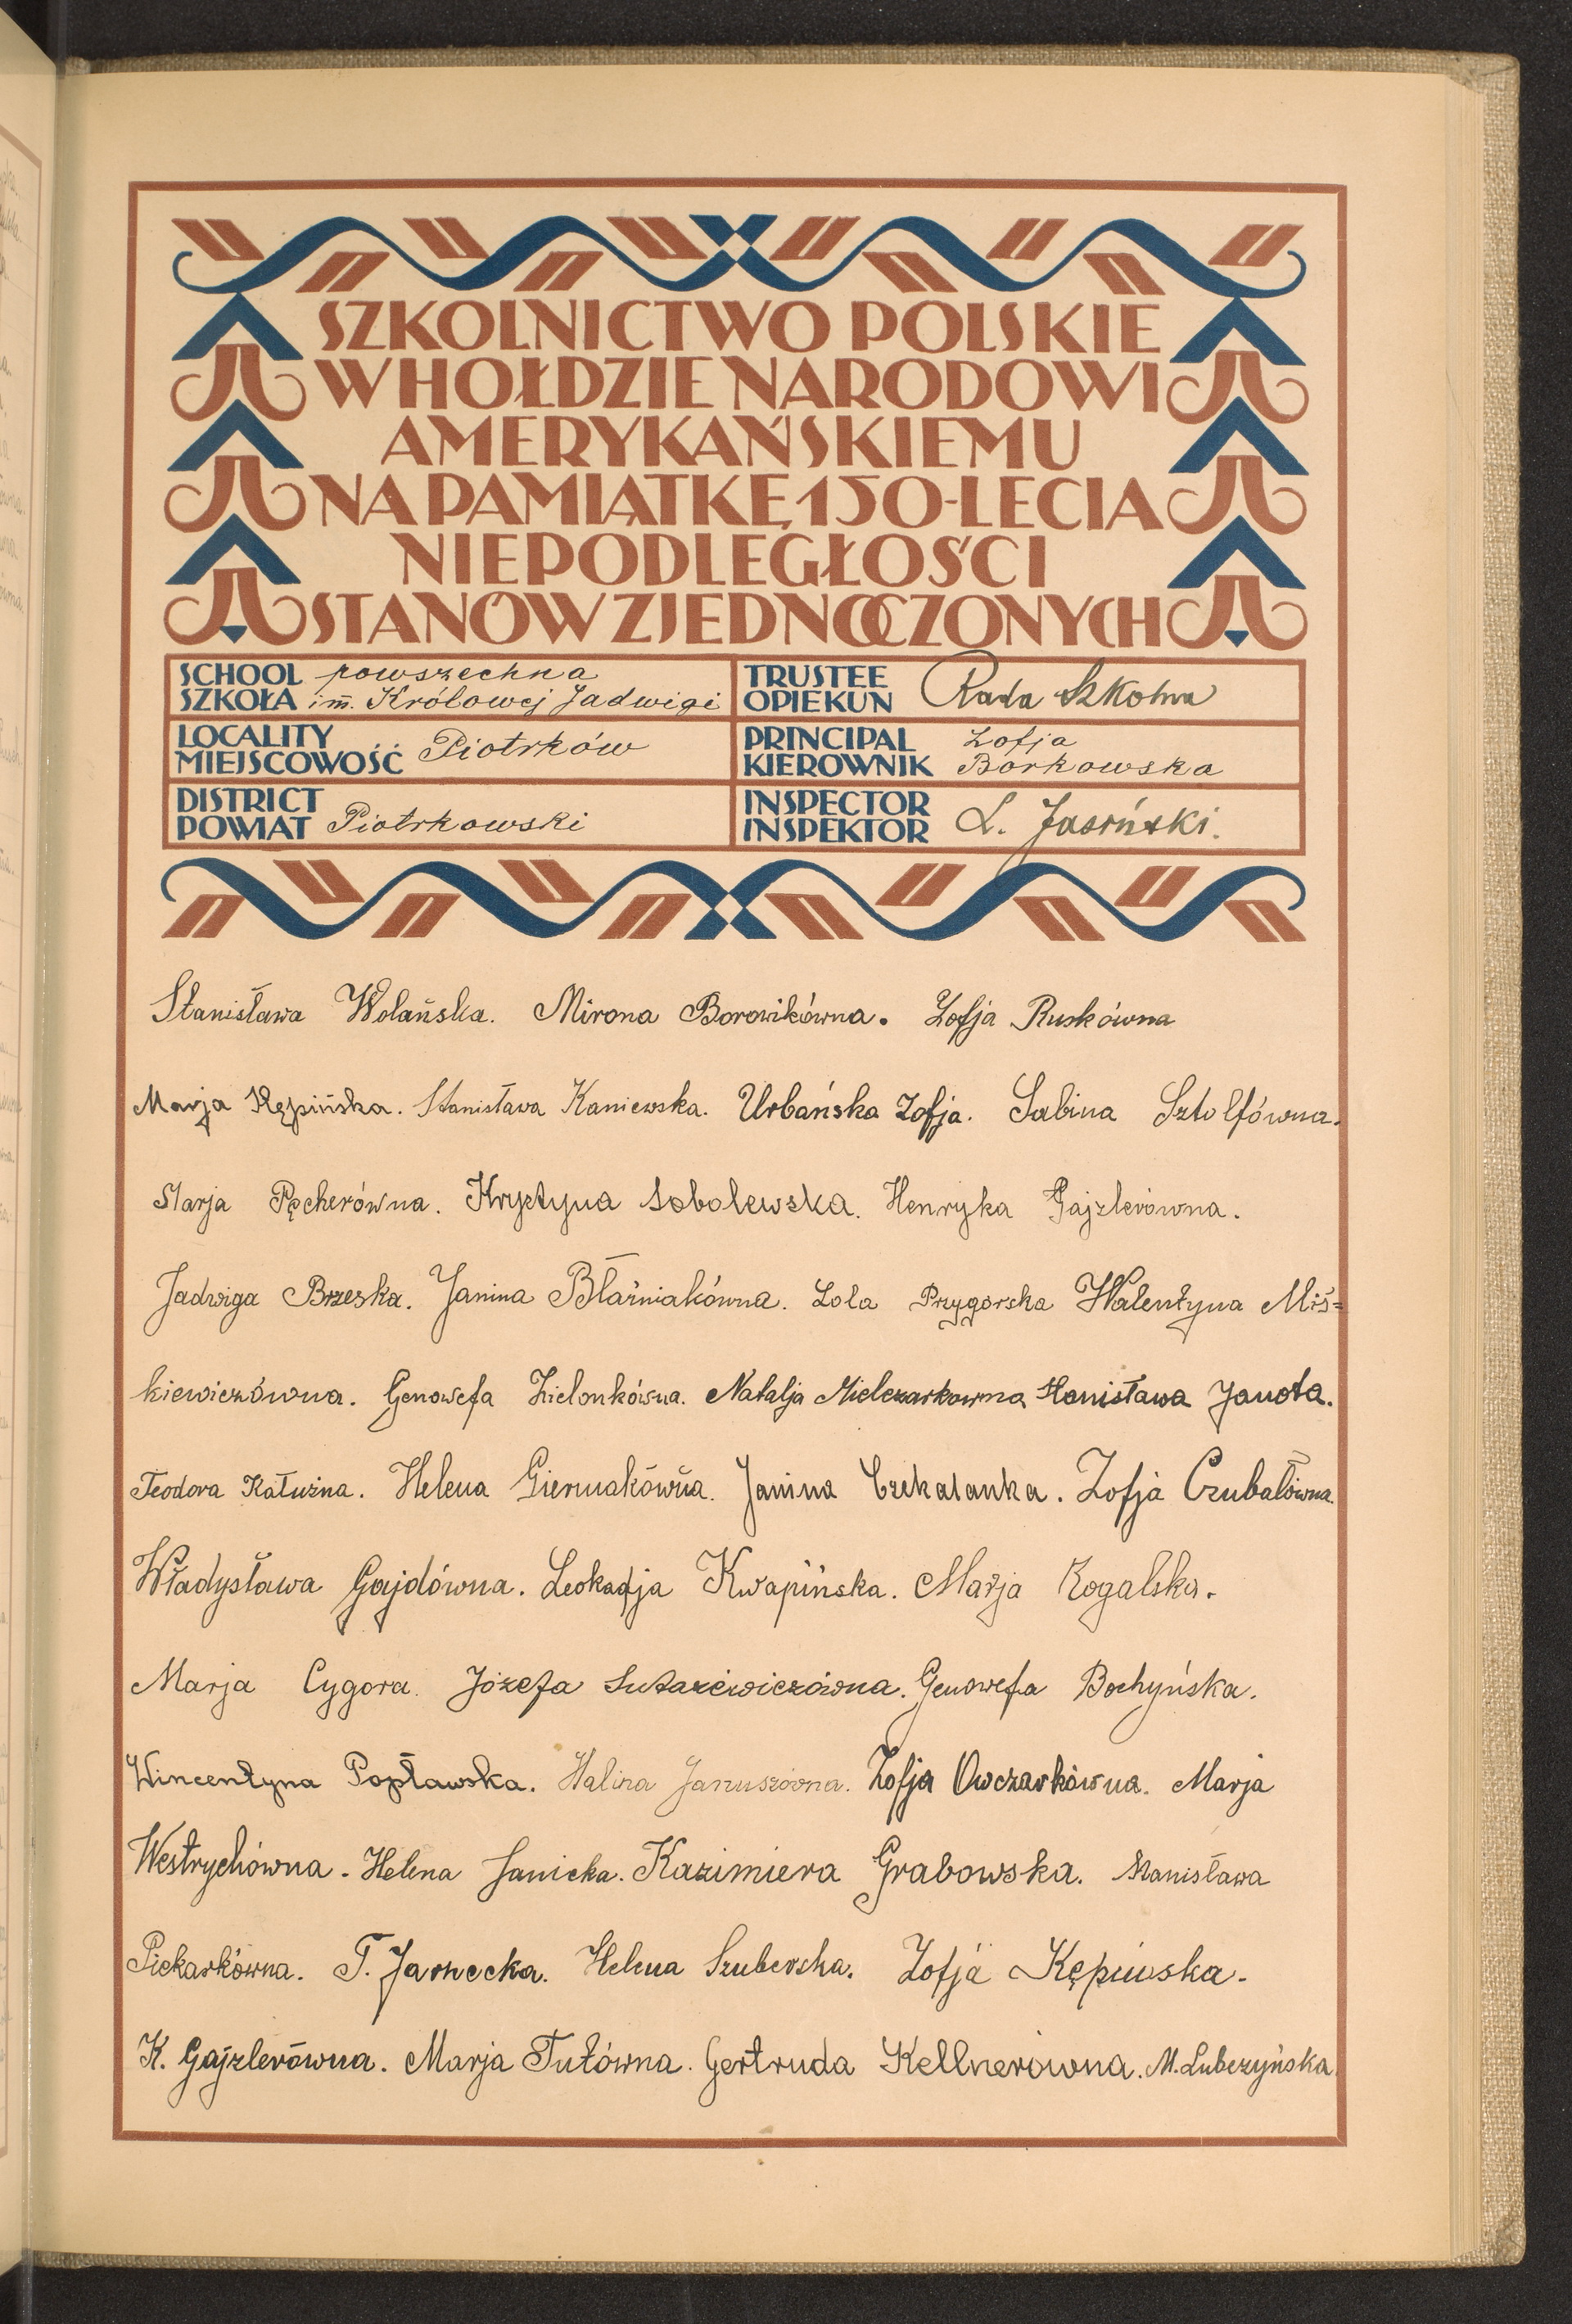 SZKOLNICTWO POLSKIE
W HOŁDZIE NARODOWI
AMERYKAŃSKIEMU
NA PAMIĄTKĘ 150-LECIA
NIEPODLEGŁOŚCI
STANÓW ZJEDNOCZONYCH
SCHOOL SZKOŁA powszechna im. Królowej Jadwigi
TRUSTEE OPIEKUN Rada Szkolna
LOCALITY MIEJSCOWOŚĆ Piotrków
PRINCIPAL KIEROWNIK Zofja Borkowska
DISTRICT POWIAT Piotrkowski
INSPECTOR INSPEKTOR L. Jasiński.
Stanisława Wolańska. Mirona Borowikówna. Zofja Ruskówna
Marja Kępińska. Stanisława Kaniewska. Urbańska Zofja. Sabina Sztolfówna.
Marja Pęcherówna. Krystyna Sobolewska. Henryka Gajzlerówna.
Jadwiga Brzeska. Janina Błaźniakówna. Lola Przygorska Walentyna Miś=
kiewiczówna. Genowefa Zielonkówna. Natalja Mielczarkowna Stanisława Janota.
Teodora Kałużna. Helena Giernakówna. Janina Czekalanka. Zofja Czubałówna.
Władysława Gajdówna. Leokadja Kwapińska. Marja Rogalska.
Marja Cygora. Józefa Genowefa Bochyńska.
Wincentyna Popławska. Halina Januszówna. Zofja Owczarkówna. Marja
Westrychówna. Helena Janicka. Kazimiera Grabowska. Stanisława
Piekarkówna. T. Jarnecka. Helena Szuberska. Zofja Kępińska.
K. Gajzlerówna. Marja Tutówna. Gertruda Kellnerówna. M. Lubczyńska